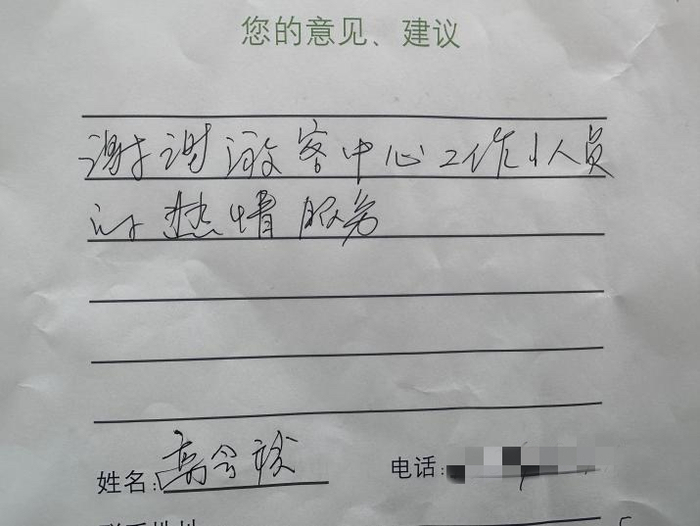 您的意见、建议
谢谢游客中心工作人员
的热情服务
姓名:高会
电话: